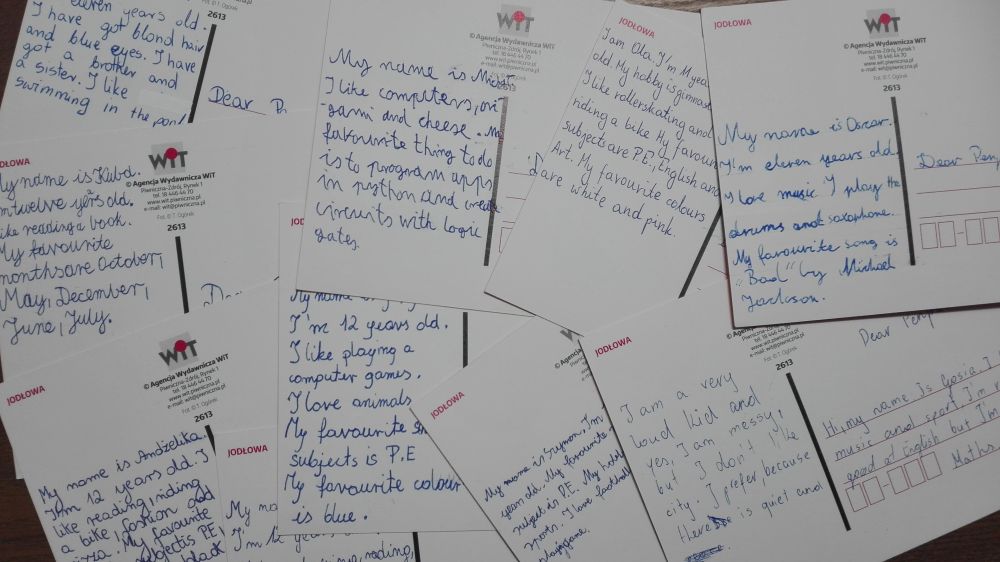 eleven years old.
I have got blond hair
and blue eyes. I have
got a brother and
a sister. I like
swimming in the pond
© Agencja Wydawnicza WiT
Fot. © T. Ogórek
2613
Dear
JODŁOWA
WiT
© Agencja Wydawnicza WiT
Piwniczna-Zdrój, Rynek 1
tel. 18 446 44 70
www.wit.piwniczna.pl
e-mail: wit@piwniczna.pl
Fot. © T. Ogórek
2613
My name is Kuba.
I'm twelve years old.
like reading a book.
My favourite
months are October,
May, December,
June, July.
WiT
© Agencja Wydawnicza WiT
Piwniczna-Zdrój, Rynek 1
tel. 18 446 44 70
www.wit.piwniczna.pl
e-mail: wit@piwniczna.pl
2613
My name is
I like computers, ori-
gami and cheese. My
favourite thing to do
is to program apps
in python and create
circuits with logic
gates.
JODŁOWA
I am Ola. I'm 11 year
old. My hobby is gimnast
I like rollerskating and
riding a bike My favour
subjects are P.E, English and
Art. My favourite colours
are white and pink.
JODŁOWA
WiT
© Agencja Wydawnicza WiT
Piwniczna-Zdrój, Rynek 1
tel. 18 446 44 70
www.wit.piwniczna.pl
e-mail: wit@piwniczna.pl
Fot. © T. Ogórek
2613
My name is Oscar.
I'm eleven years old.
I love music. I play the
drums and saxophone.
My favourite song is
"Bad" by Michael
Jackson.
Dear Penp
JODŁOWA
WiT
© Agencja Wydawnicza WiT
Piwniczna-Zdrój, Rynek 1
tel. 18 446 44 70
www.wit.piwniczna.pl
e-mail: wit@piwniczna.pl
Fot. © T. Ogórek
2613
My name is Andżelika.
I am 12 years old. I
like reading, riding
a bike, fashion and
pizza. My favourite
subject is PE,
black
JODŁOWA
I'm 12 years
My name
I'm 12 years old.
I like playing a
computer games.
I love animals
My favourite
subjects is P.E
My favourite colour
is blue.
JODŁOWA
My name is Szymon, I'm
years old. My favourite
subject is PE. My hobby
sport. I love football
JODŁOWA
© Agencja Wydawnicza WiT
Piwniczna-Zdrój, Rynek 1
tel. 18 446 44 70
www.wit.piwniczna.pl
e-mail: wit@piwniczna.pl
Fot. © T. Ogórek
2613
I am a very
loud kid and
yes, I am messy,
but I don't like
city. I prefer, because
there is quiet and
Dear Penp
Hi, my name is Gosia. I
music and sport, I'm
good at English but I'm
Maths